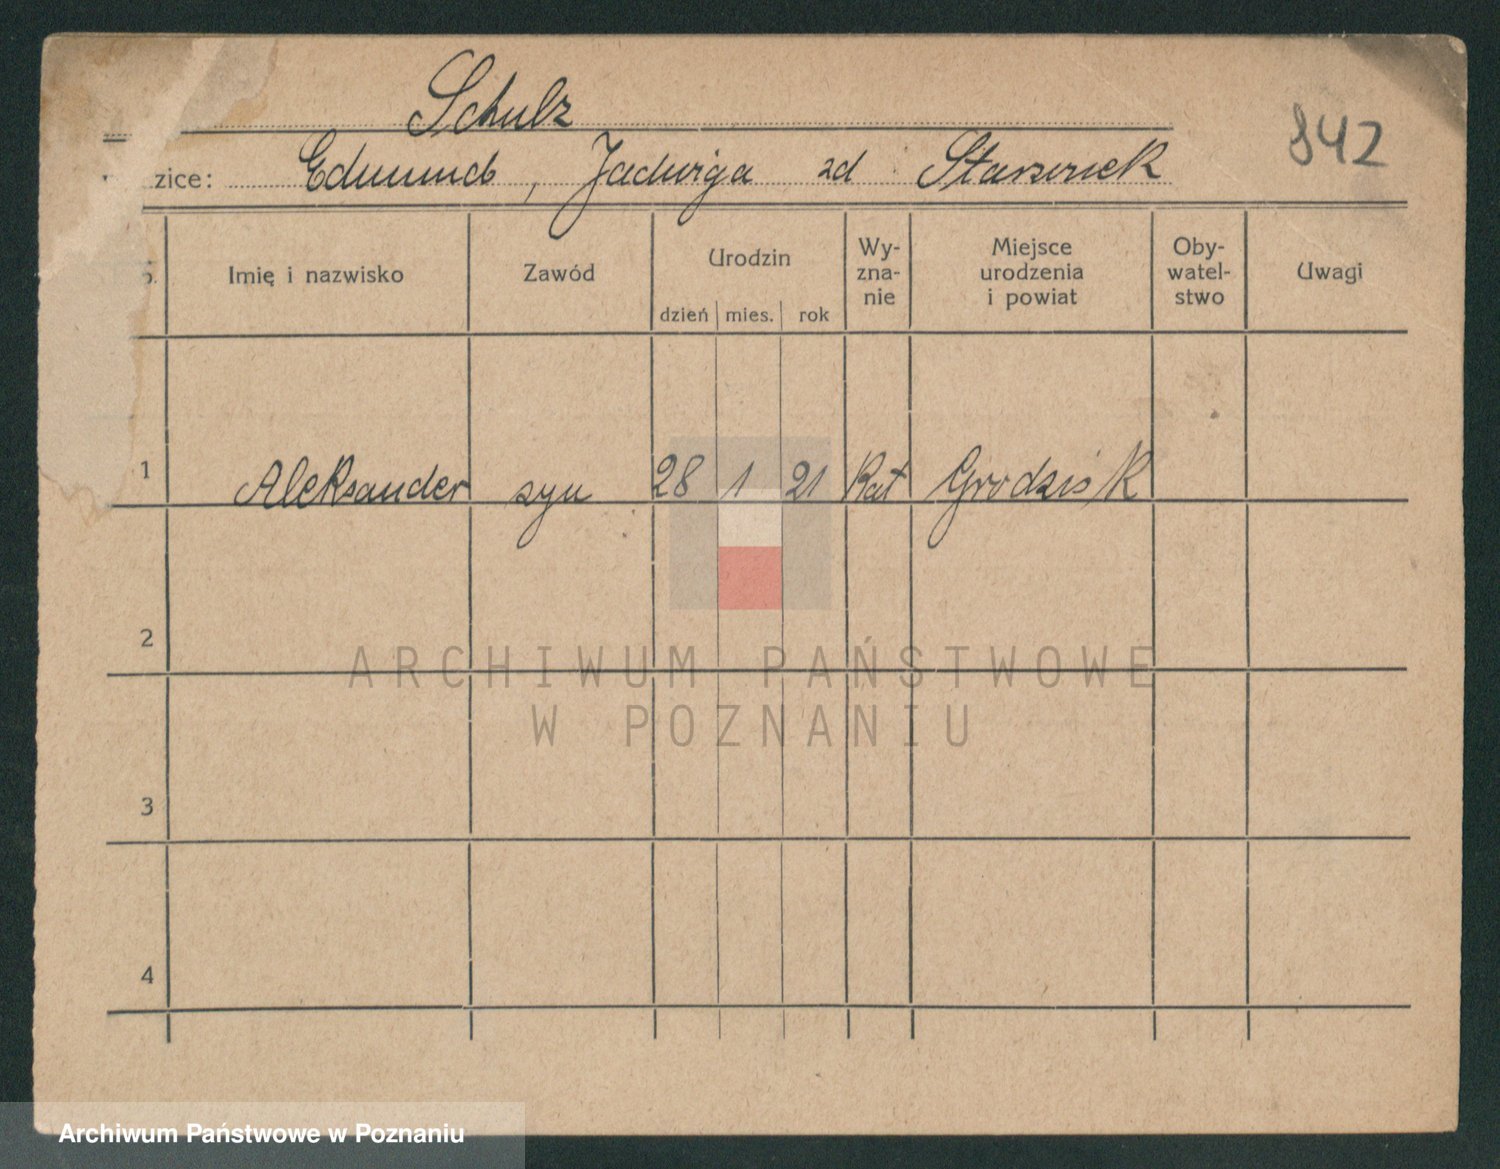 Schulz
842
zice: Edmund, Jadwiga zd
Imię i nazwisko
Zawód
Urodzin
dzień mies. rok
Wy-
zna-
nie
Miejsce
urodzenia
i powiat
Oby-
watel-
stwo
Uwagi
1 Aleksander syn 28 1 21 Kat Grodzisk
2
3
4
ARCHIWUM PAŃSTWOWE
W POZNANIU
Archiwum Państwowe w Poznaniu